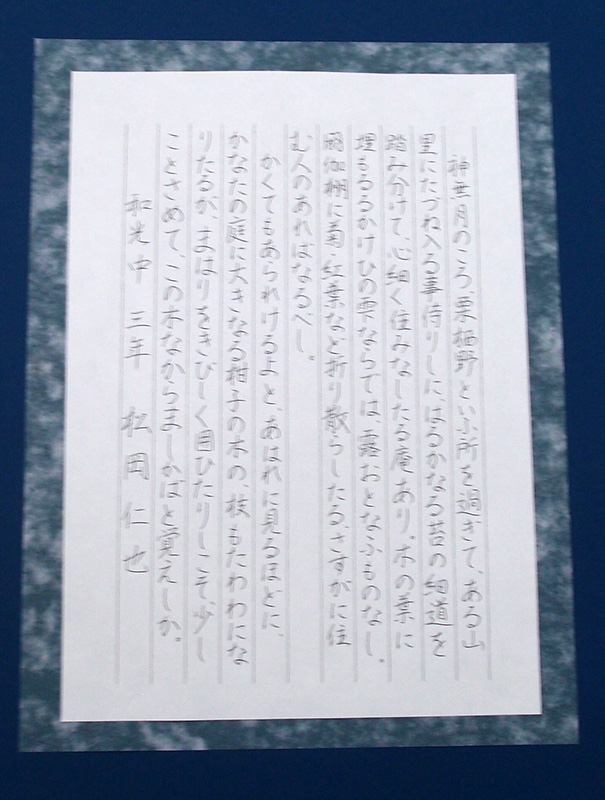 神無月のころ、栗栖野といふ所を過ぎて、ある山
里にたづね入る事侍りしに、はるかなる苔の細道を
踏み分けて、心細く住みなしたる庵あり。木の葉に
埋もるるかけひの雫ならでは、露おとなふものなし。
閼伽棚に菊・紅葉など折り散らしたる、さすがに住
む人のあればなるべし。
かくてもあられけるよと、あはれに見るほどに、
かなたの庭に大きなる柑子の木の、枝もたわわにな
りたるが、まはりをきびしく囲ひたりしこそ、少し
ことさめて、この木なからましかばと覚えしか。
和光中 三年 松岡仁也